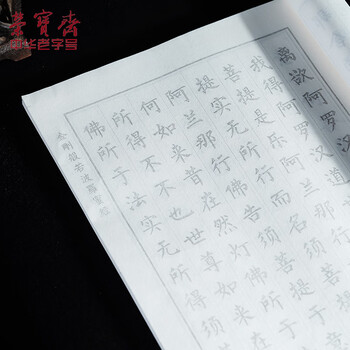 荣宝斋
中华老字号
离欲阿罗汉
我得阿罗汉道
菩提是乐阿兰那
提实无所行而名须菩
阿兰那行佛告须菩提于
何如来昔在然灯佛所于
所得不不也世尊如来在
佛所于法实无所得须
金刚般若波罗蜜经